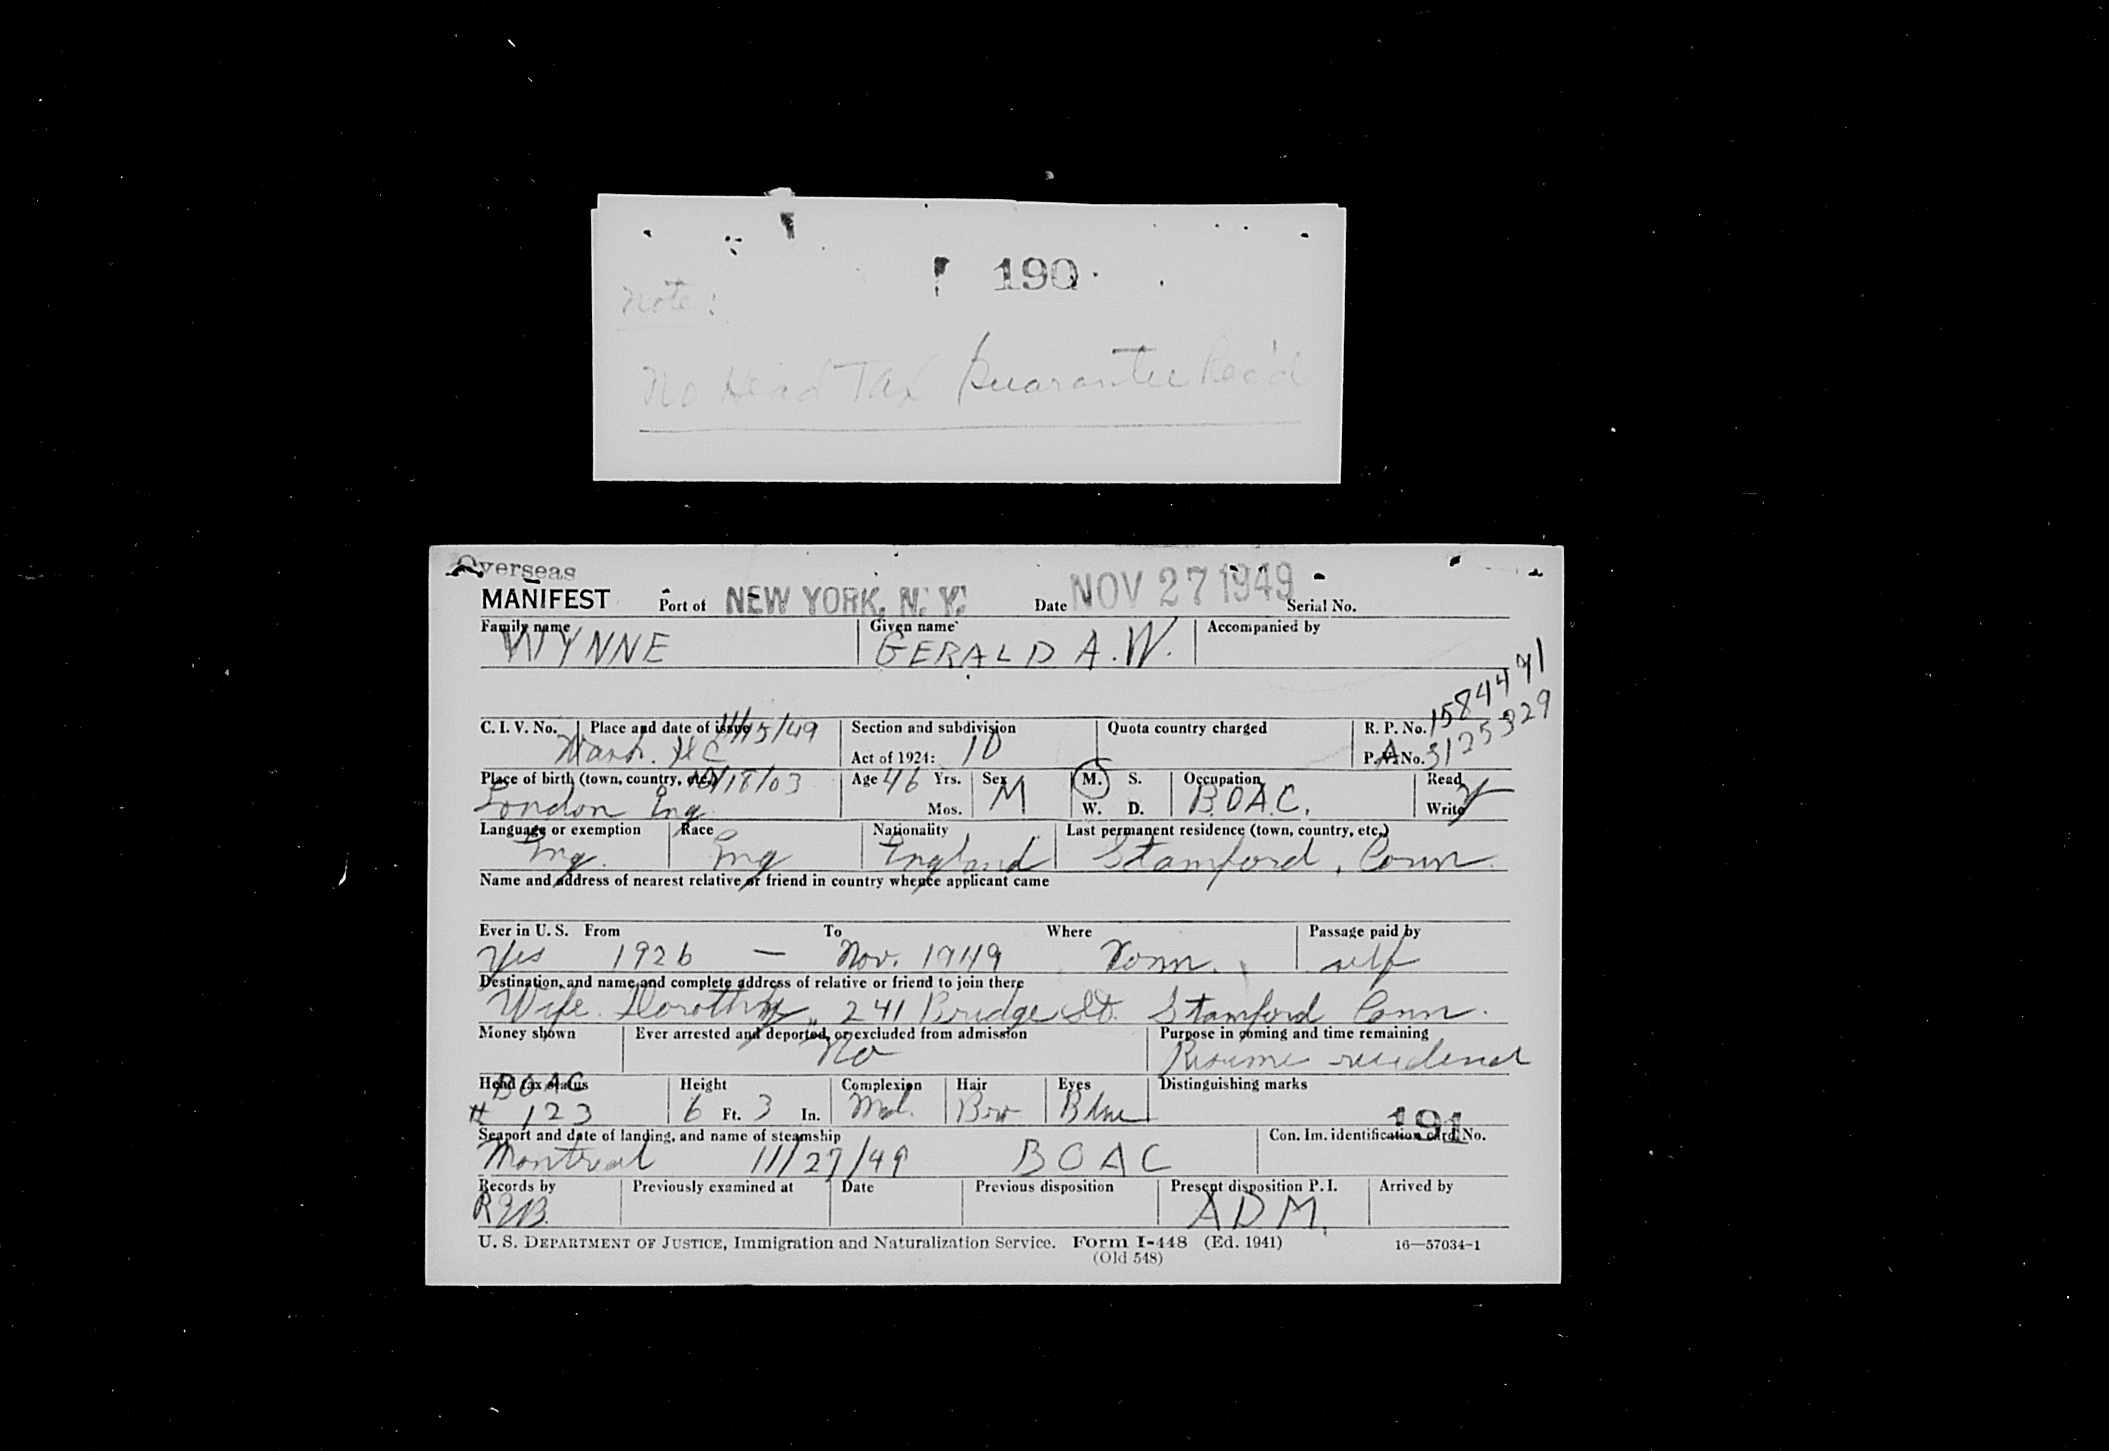 190
Note:
No Head Tax Guarantee Rec'd
Overseas
MANIFEST Port of NEW YORK, N. Y. Date NOV 27 1949 Serial No.
Family name Given name Accompanied by
WYNNE GERALD A. W.
C. I. V. No. Place and date of issue 11/15/49 Section and subdivision Quota country charged R. P. No. 1584441
Wash. DC Act of 1924: 1D P. V. No. A 3125329
Place of birth (town, country, etc.) 10/18/03 Age 46 Yrs. Sex M M. S. Occupation Read
London Eng Mos. W. D. B.O.A.C. Write y
Language or exemption Race Nationality Last permanent residence (town, country, etc.)
Eng. Eng England Stamford, Conn.
Name and address of nearest relative or friend in country whence applicant came
Ever in U. S. From To Where Passage paid by
Yes 1926 — Nov. 1949 Conn. self
Destination, and name and complete address of relative or friend to join there
Wife Dorothy, 241 Bridge St. Stamford Conn.
Money shown Ever arrested and deported, or excluded from admission Purpose in coming and time remaining
No Resume residence
Head tax status Height Complexion Hair Eyes Distinguishing marks
BOAC
# 123 6 Ft. 3 In. Med. Brn Blue
191
Seaport and date of landing, and name of steamship Con. Im. identification card No.
Montreal 11/27/49 BOAC
Records by Previously examined at Date Previous disposition Present disposition P. I. Arrived by
ADM.
U. S. DEPARTMENT OF JUSTICE, Immigration and Naturalization Service. Form I-448 (Ed. 1941) 16—57034-1
(Old 548)